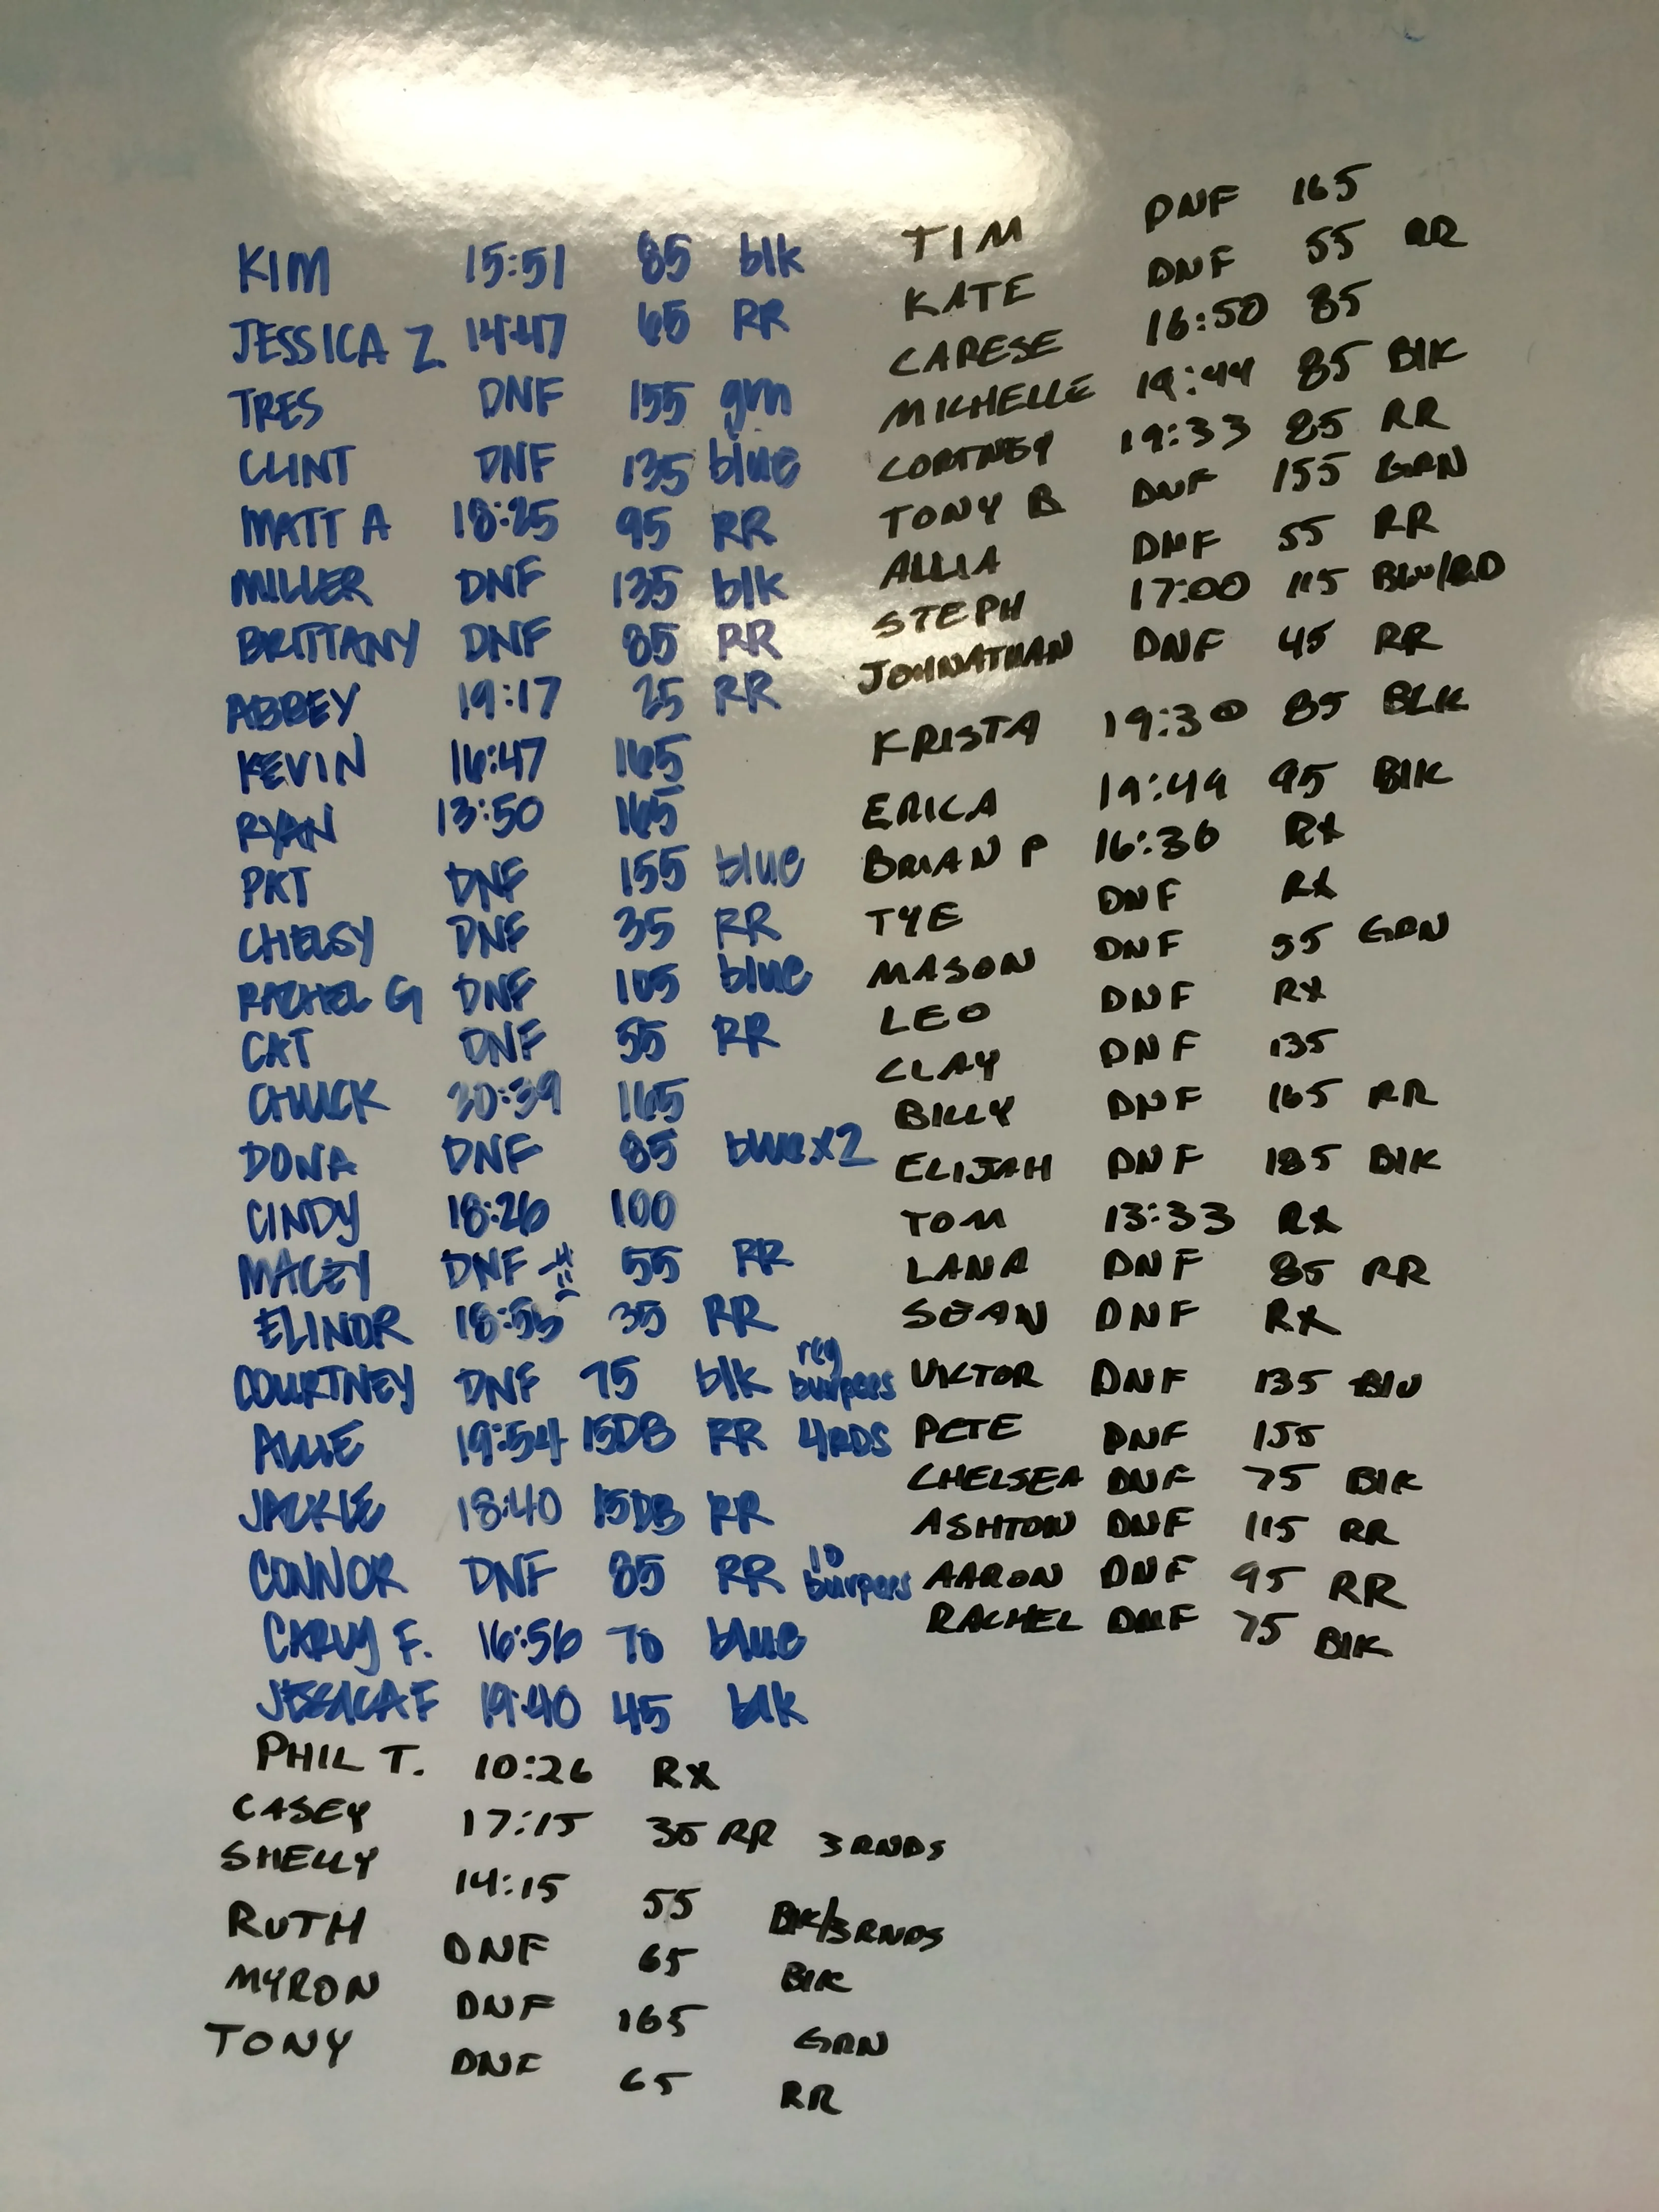 KIM 15:51 85 blk
JESSICA Z. 14:47 65 RR
TRES DNF 155 grn
CLINT DNF 135 blue
MATT A 18:25 95 RR
MILLER DNF 135 blk
BRITTANY DNF 85 RR
ABBEY 19:17 25 RR
KEVIN 16:47 165
RYAN 13:50 165
PKT DNF 155 blue
CHELSY DNF 35 RR
RACHEL G DNF 105 blue
CAT DNF 55 RR
CHUCK 20:39 165
DONA DNF 85 blue x2
CINDY 18:26 100
MACEY DNF 55 RR
ELINOR 18:55 35 RR
COURTNEY DNF 75 blk reg burpees
ALLIE 19:54 15DB RR 4RDS
JACKIE 18:40 15DB RR
CONNOR DNF 85 RR 10 burpees
CARLY F. 16:56 70 blue
JESSICA F 19:40 45 blk
PHIL T. 10:26 RX
CASEY 17:15 35 RR 3 RNDS
SHELLY 14:15 55 BlK/3RNDS
RUTH DNF 65 BlK
MYRON DNF 165 GRN
TONY DNF 65 RR
TIM DNF 165
KATE DNF 55 RR
CARESE 16:50 85
MICHELLE 19:44 85 BlK
CORTNEY 19:33 85 RR
TONY B DNF 155 GRN
ALLIA DNF 55 RR
STEPH 17:00 115 BLU/RD
JOHNATHAN DNF 45 RR
KRISTA 19:30 85 BLK
ERICA 19:49 95 BlK
BRIAN P 16:36 RX
TYE DNF RX
MASON DNF 55 GRN
LEO DNF RX
CLAY DNF 135
BILLY DNF 165 RR
ELIJAH DNF 185 BlK
TOM 13:33 RX
LANA DNF 85 RR
SEAN DNF RX
VIKTOR DNF 135 BlU
PETE DNF 155
CHELSEA DNF 75 BlK
ASHTON DNF 115 RR
AARON DNF 95 RR
RACHEL DNF 75 BlK